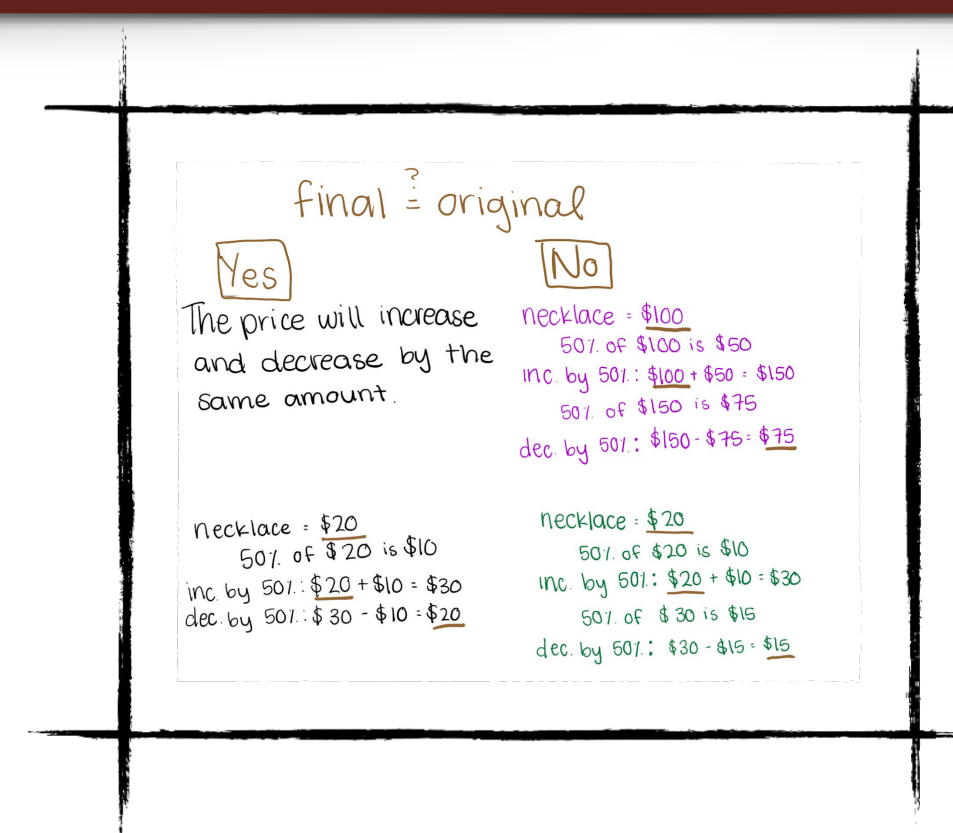 final ≟ original
Yes
The price will increase
and decrease by the
same amount.
necklace = $20
50% of $20 is $10
inc. by 50%: $20 + $10 = $30
dec. by 50%: $30 - $10 = $20
No
necklace = $100
50% of $100 is $50
inc. by 50%: $100 + $50 = $150
50% of $150 is $75
dec. by 50%: $150 - $75 = $75
necklace = $20
50% of $20 is $10
inc. by 50%: $20 + $10 = $30
50% of $30 is $15
dec. by 50%: $30 - $15 = $15